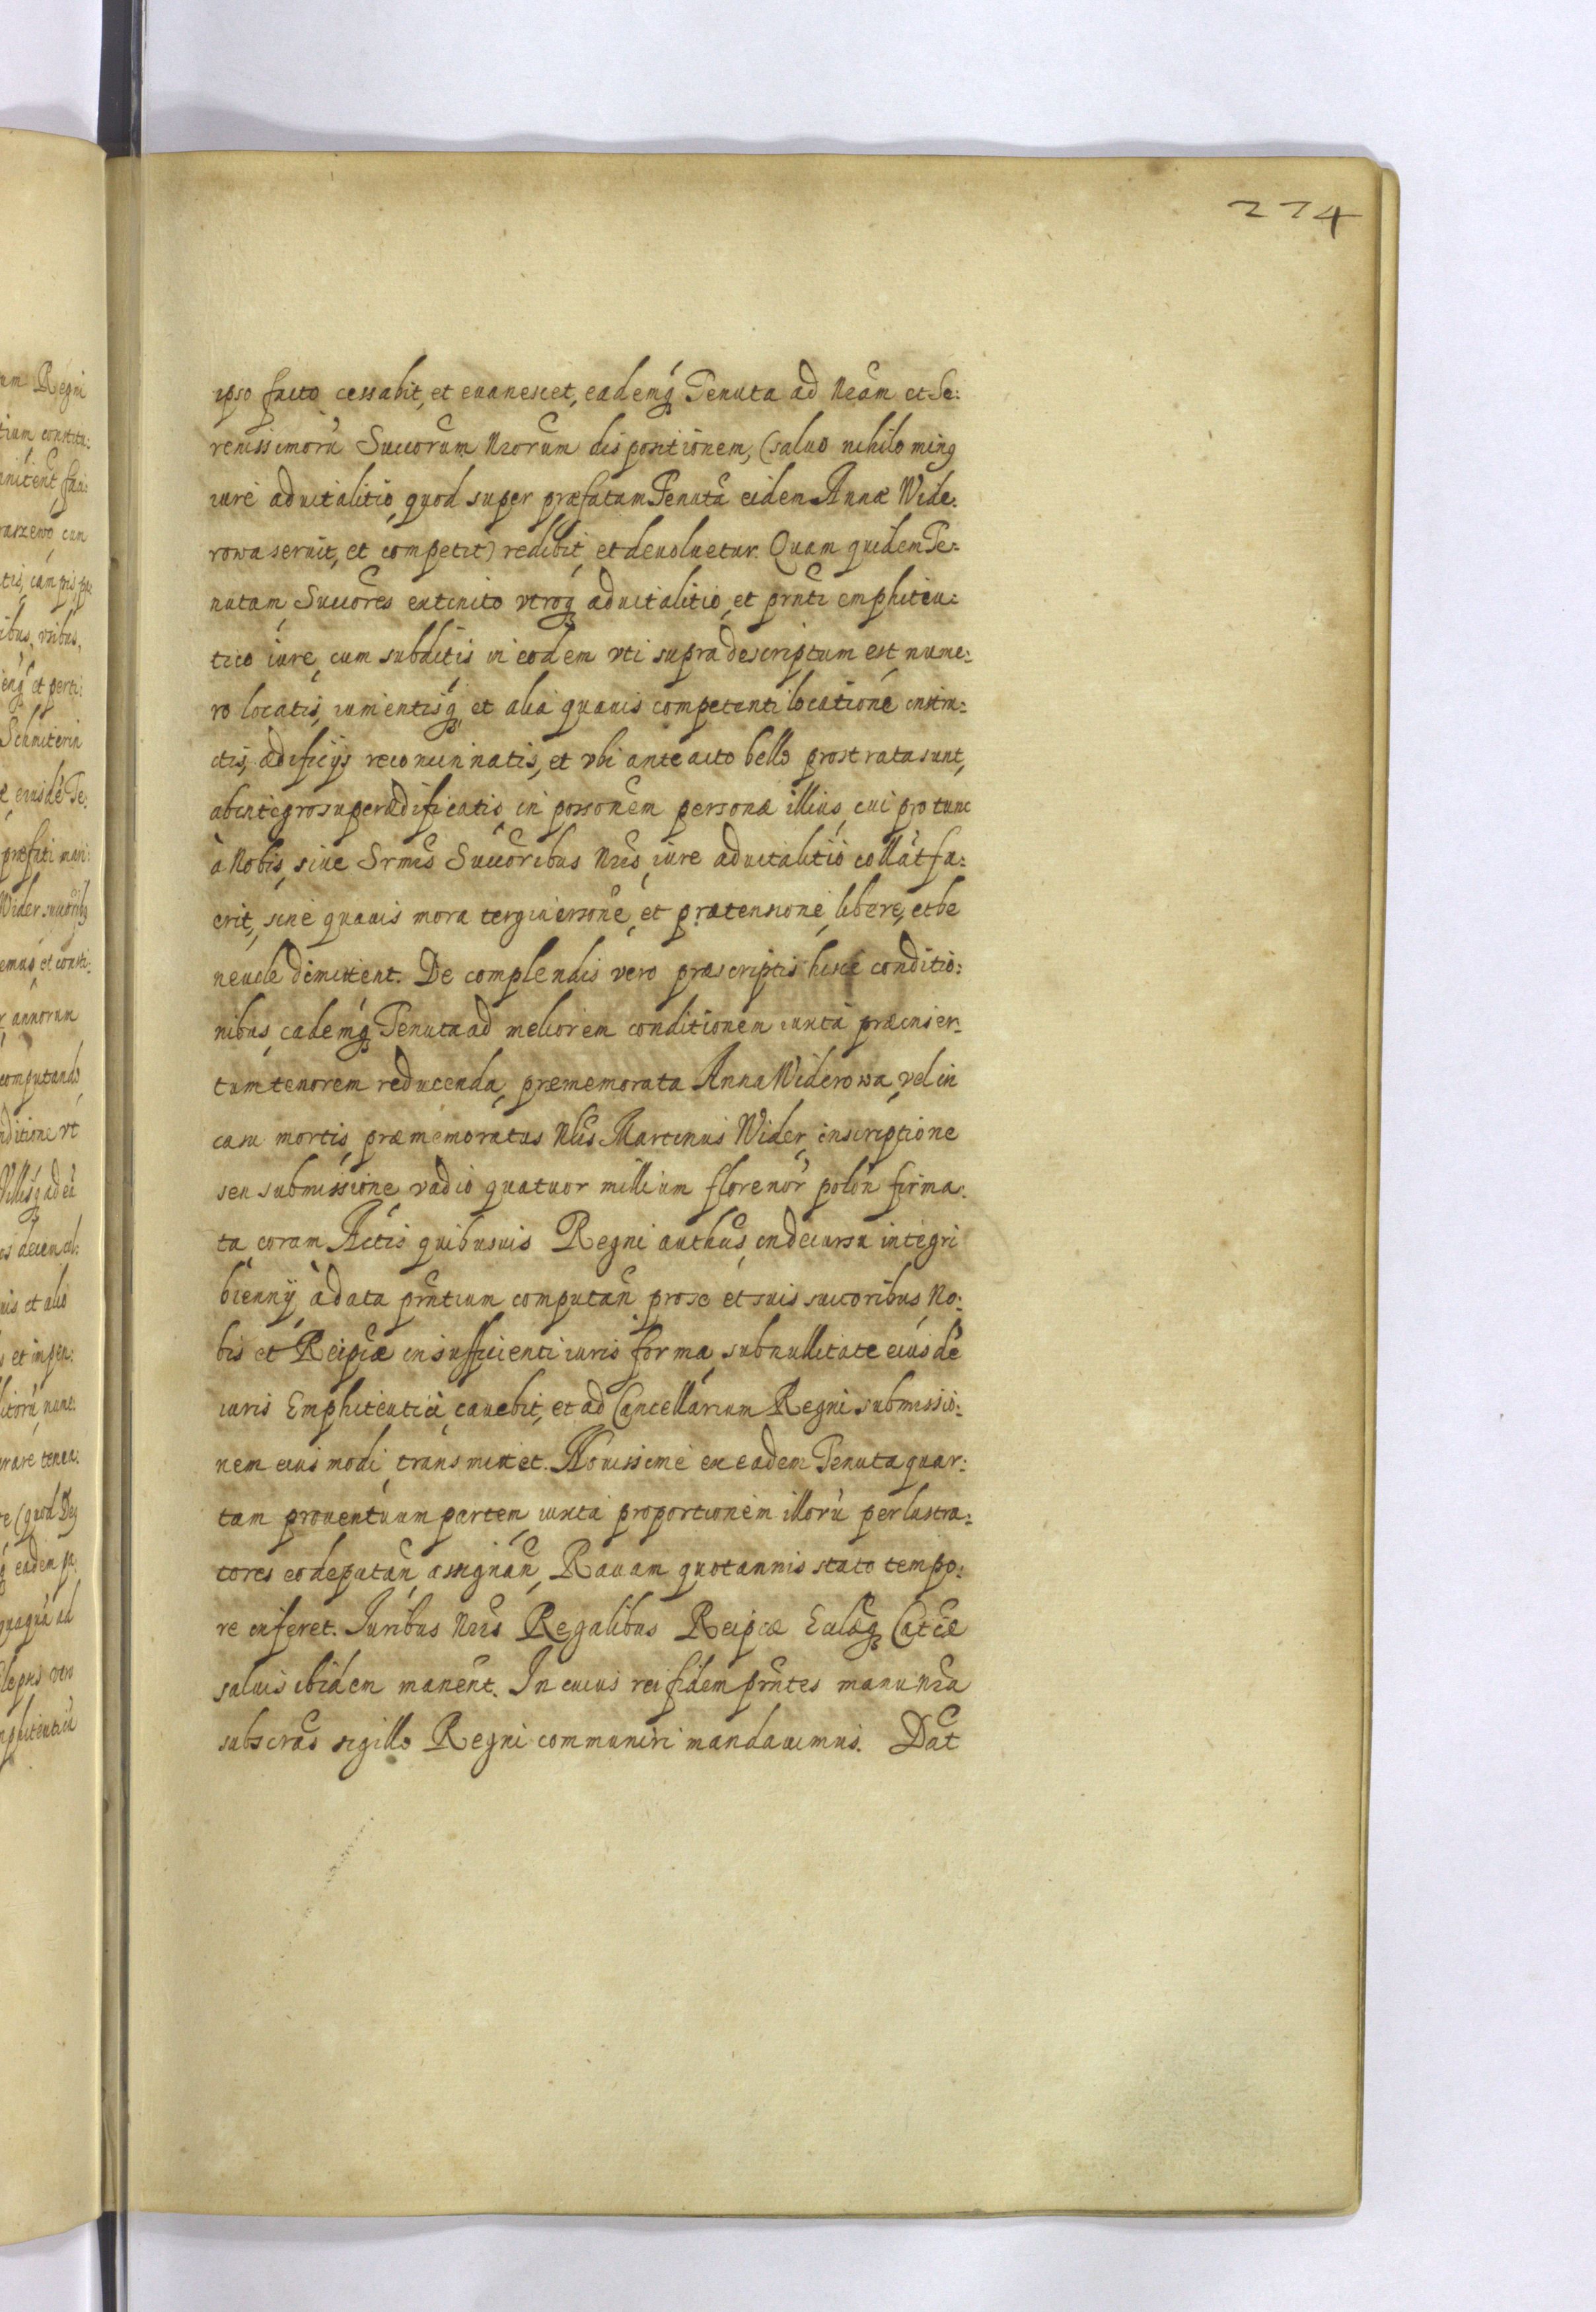 274
ipso facto cessabit, et euanescet, eademq; Tenuta ad Nram et Se:
renissimorũ Succorum Nrorum dispositionem, (saluo nihilo minq
iure aduitalitio, quod super præfatam Tenutã eidem Annæ Wide:
rowa seruit, et competit) redibit, et deuoluetur. Quam quidem Te:
nutam Succores extincto vtroq; aduitalitio, et prnti emphiteu:
tico iure, cum subditis in eodem vti supra descriptum est, nume:
ro locatis, iumentisq; et alia quauis competenti locatione instru:
ctis, ædificijs reconcinnatis, et vbi anteacto bello prostrata sunt,
abintegro superædificatis, in possonem personæ illius, cui pro tunc
à Nobis, siue Srmis Succoribus Nris, iure aduitalitio collat fu:
erit, sine quauis mora tergiuersone, et prætensione, libere, et be
neuole dimittent. De complendis vero præscriptis hisce conditio:
nibus, eademq; Tenuta ad meliorem conditionem iuxta præinser:
tum tenorem reducenda, prememorata Anna Widerowa, vel in
casu mortis, præmemoratus Nlis Martinus Wider, inscriptione
seu submissione, vadio quatuor millium florenor̃ polon̄ firma:
ta, coram Actis quibusuis Regni authcis, in decursu integri
biennij, à data prntium computan̄ pro se et suis succoribus, No:
bis et Reipcæ in sufficienti iuris forma, sub nullitate eiusdẽ
iuris Emphiteutici, cauebit, et ad Cancellarium Regni submissio:
nem eius modi, transmittet. Nouissime ex eadem Tenuta quar:
tam prouentuum partem, iuxta proportionem illorũ per lustra:
tores eo deputan̄, assignan̄, Rauam quotannis stato tempo:
re inferet. Iuribus Nris Regalibus Reipcæ Ecclæq; Catcæ
saluis ibidem manent. In cuius rei fidem prntes manu Nra
subscras sigillo Regni communiri mandauimus. Dat